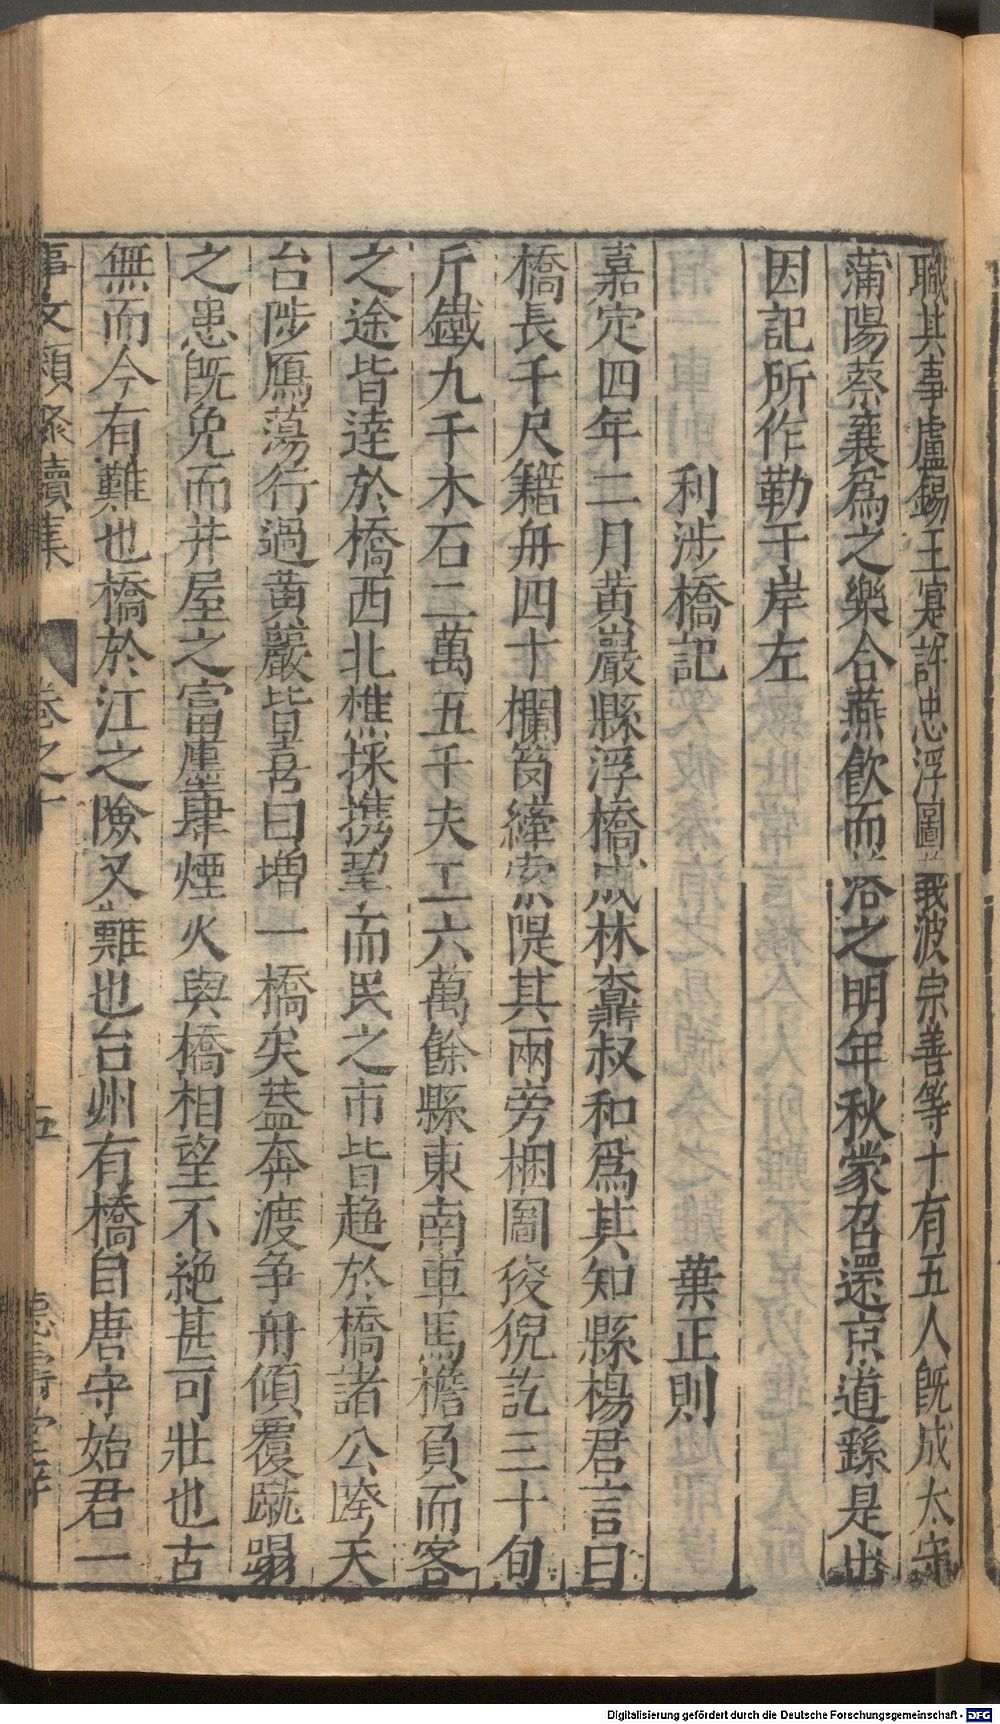 職其事盧錫王寔許忠浮圖義波宗善等十有五人既成太守
蒲陽蔡襄為之樂合燕飲而落之明年秋蒙召還京道繇是出
因記所作勒于岸左
利涉橋記 葉正則
嘉定四年二月黃巖縣浮橋成林鼐叔和為其知縣楊君言曰
橋長千尺籍舟四十欄笭縴索隄其兩旁梱圖狻猊訖三十旬
斤鐵九千木石二萬五千夫工六萬餘縣東南車馬檐負而客
之途皆逹於橋西北樵採携挈而民之市皆趨於橋諸公跨天
台陟鴈蕩行過黃巖皆喜曰增一橋矣葢奔渡争舟傾覆蹴蹋
之患旣免而井屋之富廛肆煙火與橋相望不絶甚可壯也古
無而今有難也橋於江之險又難也台州有橋自唐守始君一
事文類聚續集 卷之十 五
德壽堂梓
Digitalisierung gefördert durch die Deutsche Forschungsgemeinschaft - DFG